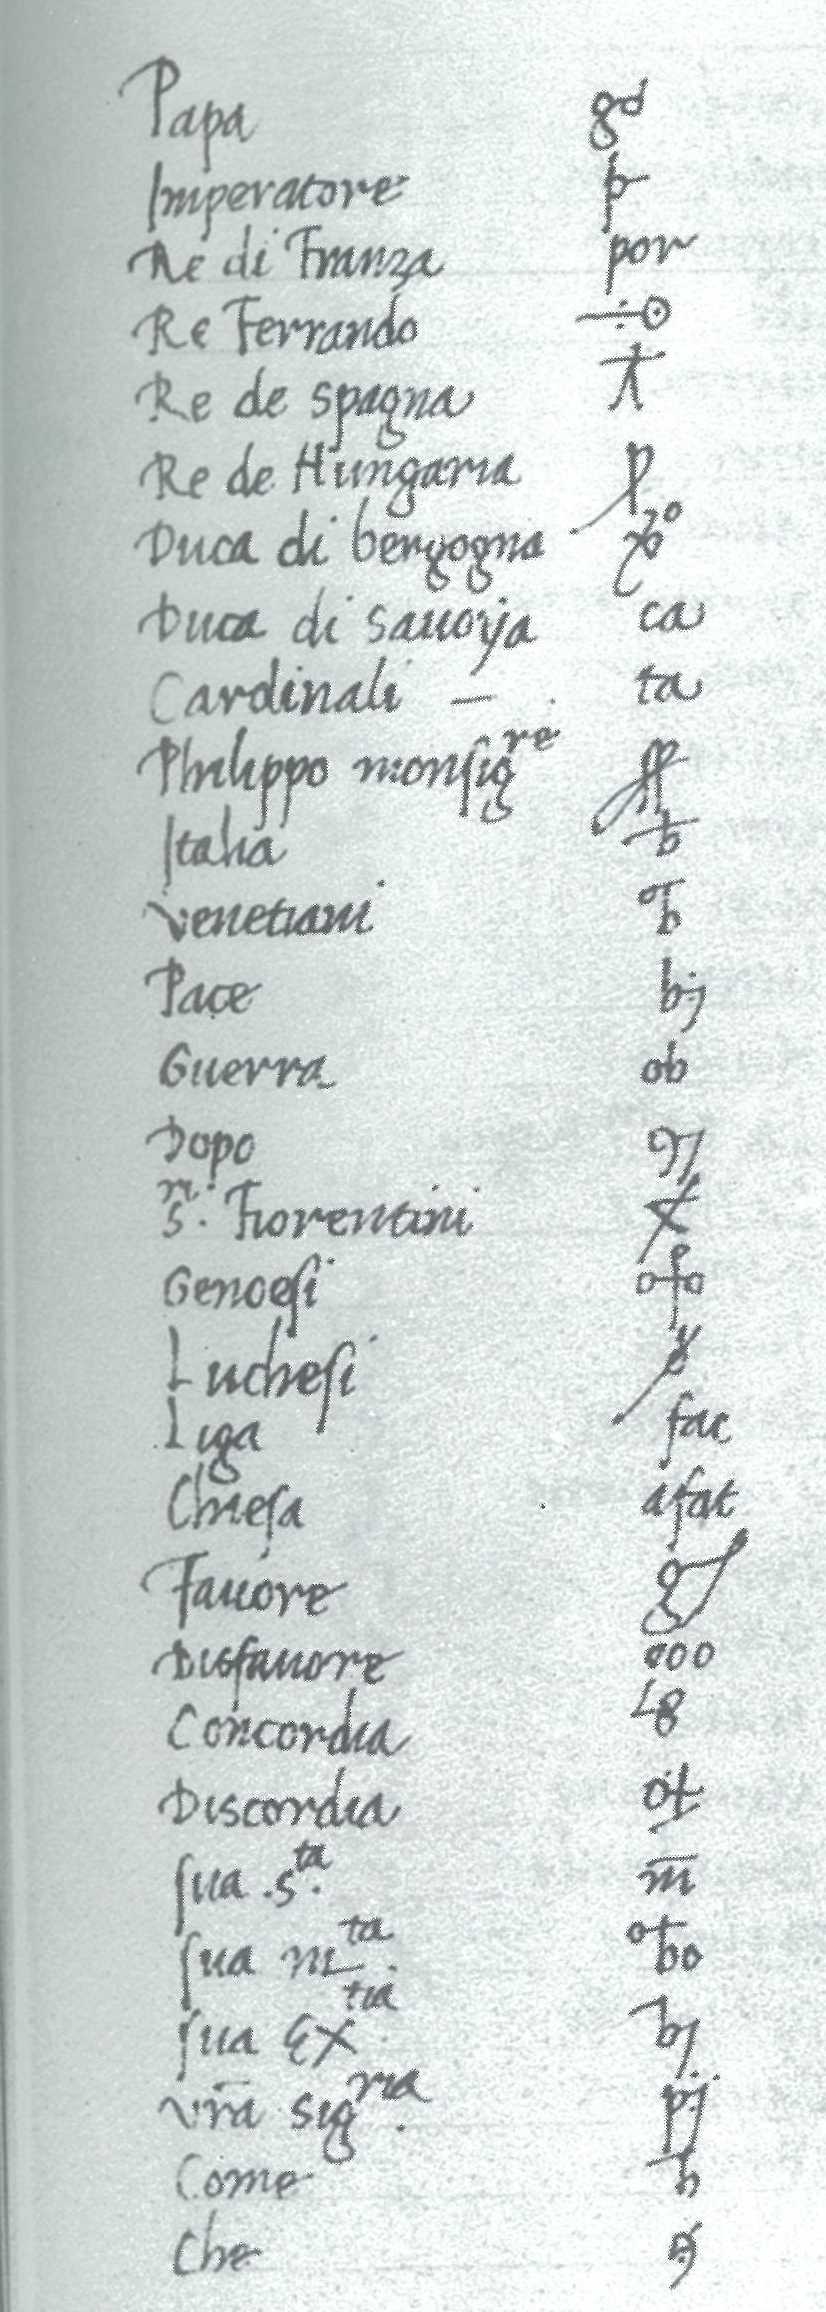 Papa gd
Imperatore
Re di Franza por
Re Ferrando
Re de spagna
Re de Hungaria
Duca di bergogna
Duca di sauoÿa ca
Cardinali — ta
Philippo monsig^re
Italia
Venetiani
Pace
Guerra ob
Dopo
S^ri. Fiorentini
Genoesi
Luchesi
Liga fac
Chiesa afat
Fauore
Disfauore 000
Concordia
Discordia
sua .s^ta. m̄
sua m^ta.
sua Ex^tia
vr̄a sig^ria.
Come
Che